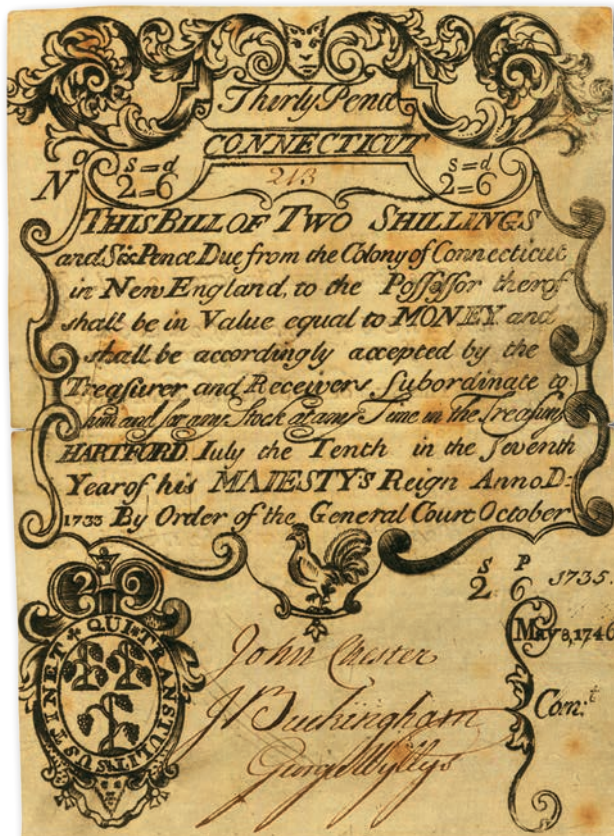 Thirty Pence
CONNECTICUT
No 213
s=d
2=6
s=d
2=6
THIS BILL OF TWO SHILLINGS
and Six Pence Due from the Colony of Connecticut
in New England, to the Possessor therof
shall be in Value equal to MONEY and
shall be accordingly accepted by the
Treasurer and Receivers Subordinate to
him and for any Stock at any Time in the Treasury
HARTFORD. July the Tenth in the Seventh
Year of his MAIESTY'S Reign Anno D:
1733 By Order of the General Court October
s P
2 6 1735.
May 8, 1740
Con:t
QUI TRANSTULIT SUSTINET
John Chester
J Buckingham
George Wyllys